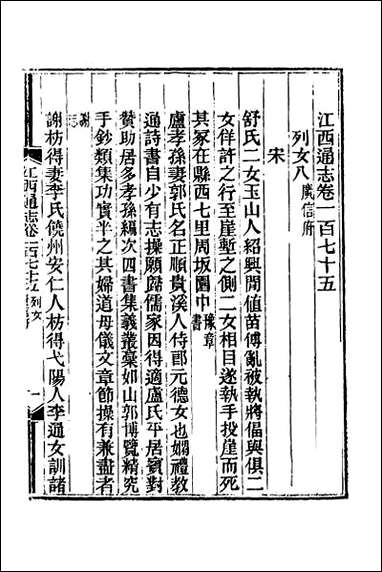 江西通志卷一百七十五
列女八 廣信府
宋
舒氏二女玉山人紹興間值苗傅亂被執將偪與俱二
女佯許之行至崖塹之側二女相目遂執手投崖而死
其冢在縣西七里周坂園中 豫章書
盧孝孫妻郭氏名正順貴溪人侍郎元德女也嫺禮教
通詩書自少有志操願歸儒家因得適盧氏平居賓對
贊助居多孝孫編次四書集義叢槀如山郭博覽精究
手鈔類集功實半之其婦道母儀文章節操有兼盡者
謝志
謝枋得妻李氏饒州安仁人枋得弋陽人李通女訓諸
江西通志卷一百七十五 列女 一